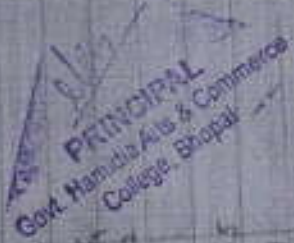 PRINCIPAL
Govt. Hamidia Arts & Commerce
College, Bhopal